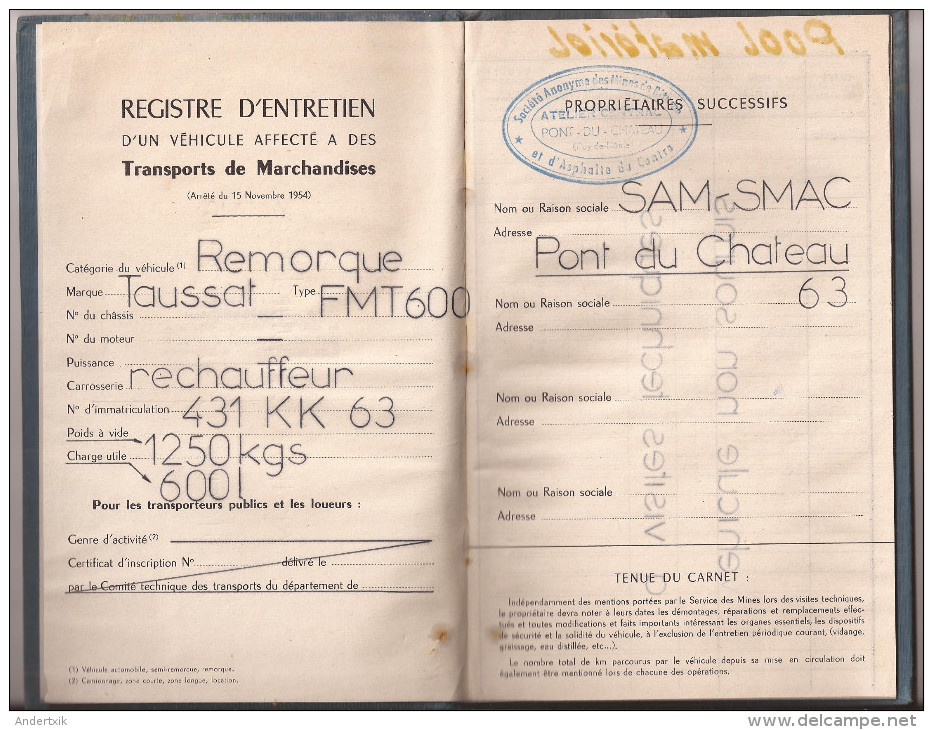 REGISTRE D'ENTRETIEN
D'UN VÉHICULE AFFECTÉ A DES
Transports de Marchandises
(Arrêté du 15 Novembre 1954)
Catégorie du véhicule (1) Remorque
Marque Taussat Type FMT600
N° du châssis —
N° du moteur —
Puissance
Carrosserie rechauffeur
N° d'immatriculation 431 KK 63
Poids à vide 1250 kgs
Charge utile 600 l
Pour les transporteurs publics et les loueurs :
Genre d'activité (2)
Certificat d'inscription N° délivré le
par le Comité technique des transports du département de
(1) Véhicule automobile, semi-remorque, remorque.
(2) Camionnage, zone courte, zone longue, location.
Pool matériel
Société Anonyme des Mines de
ATELIER CENTRAL
PONT-DU-CHATEAU
(Puy-de-Dôme)
et d'Asphalte du Centre
PROPRIÉTAIRES SUCCESSIFS
Nom ou Raison sociale SAM-SMAC
Adresse Pont du Chateau
63
Nom ou Raison sociale
Adresse
Nom ou Raison sociale
Adresse
Nom ou Raison sociale
Adresse
visites techniques
véhicule non soumis
TENUE DU CARNET :
Indépendamment des mentions portées par le Service des Mines lors des visites techniques,
le propriétaire devra noter à leurs dates les démontages, réparations et remplacements effec-
tués et toutes modifications et faits importants intéressant les organes essentiels, les dispositifs
de sécurité et la solidité du véhicule, à l'exclusion de l'entretien périodique courant, (vidange,
graissage, eau distillée, etc...).
Le nombre total de km parcourus par le véhicule depuis sa mise en circulation doit
également être mentionné lors de chacune des opérations.
Andertxik
www.delcampe.net